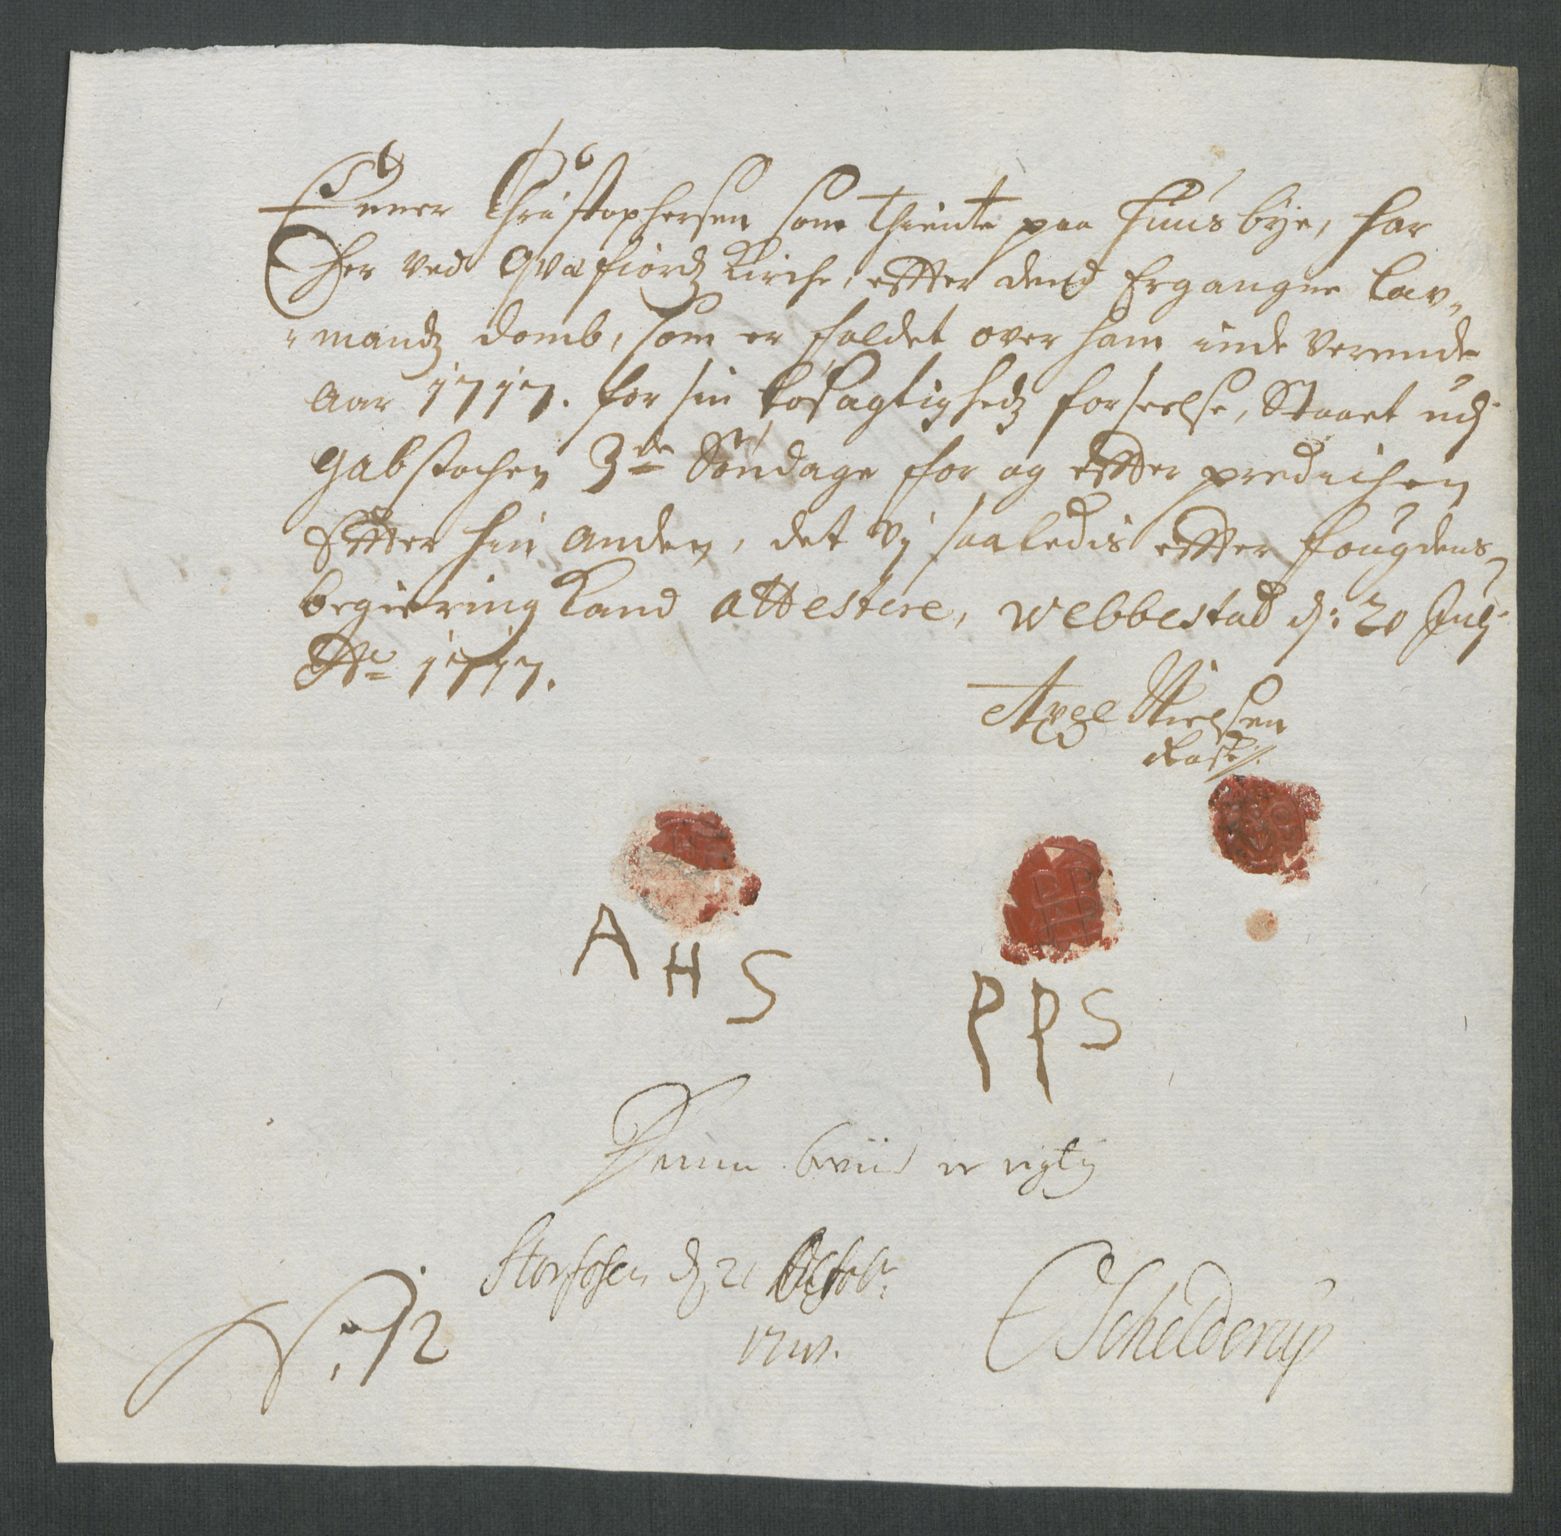 Ener Christophersen som thiente paa Huusbye, har
her ved Qvæfiordz Kirche, efter dend Ergangne Lav-
mandz domb, som er faldet over ham inde verende
Aar 1717. for sin løsagtighedz forseelse, Staaet udj
gabstochen 3de Søndage for og efter predichen
Efter hin anden, det vj saaledis efter fougdens
begiering kand attestere, Webbestad d: 20 Julj
Ao 1717.
Axel Nielsen
Rask
A H S
P P S
Denne beviis er rigtig
Storfosen d. 21 Octobr:
1717.
Schelderup
No: 12